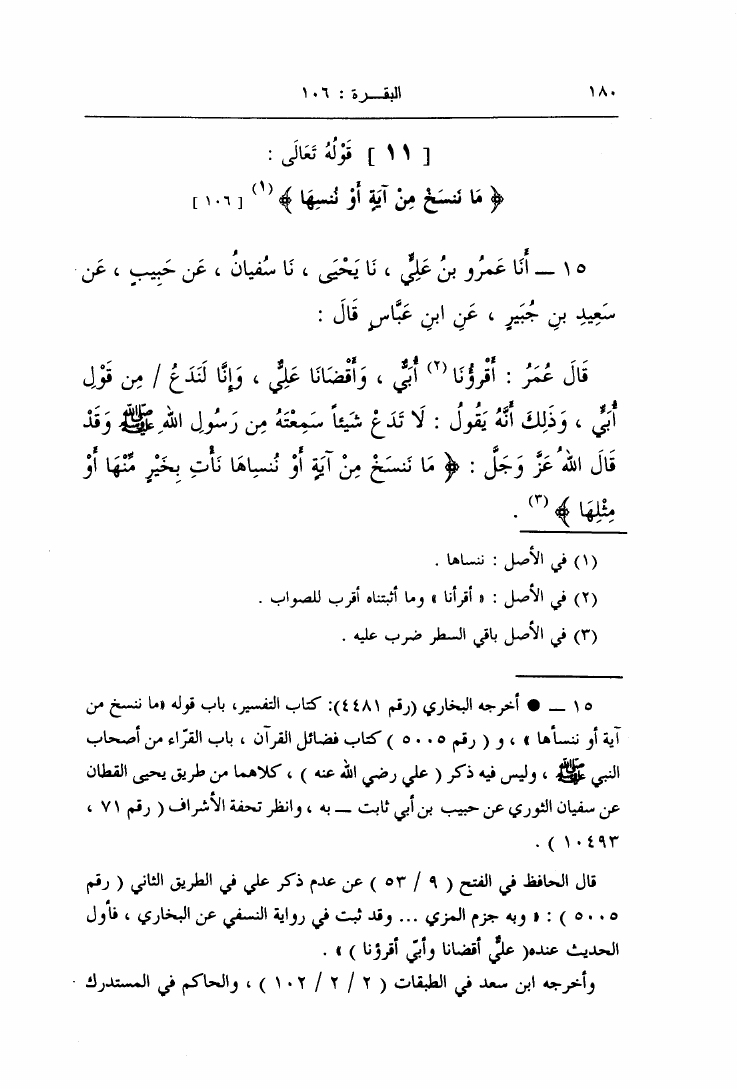 ١٨٠ البقـــرة : ١٠٦
[ ١١ ] قَوْلُهُ تَعَالَى :
﴿ مَا نَنسَخْ مِنْ آيَةٍ أَوْ نُنسِهَا ﴾ (١) [ ١٠٦ ]
١٥ ــ أَنَا عَمرُو بنُ عَلِيٍّ ، نَا يَحْيَى ، نَا سُفيانُ ، عَن حَبِيبٍ ، عَن
سَعِيدِ بنِ جُبَيرٍ ، عَنِ ابنِ عَبَّاسٍ قَالَ :
قَالَ عُمَرُ : أَقْرَؤُنَا (٢) أُبَيٌّ ، وَأَقْضَانَا عَلِيٌّ ، وَإِنَّا لَنَدَعُ / مِن قَوْلِ
أُبَيٍّ ، وَذَلِكَ أَنَّهُ يَقُولُ : لَا تَدَعْ شَيئاً سَمِعْتَهُ مِن رَسُولِ اللهِ ﷺ وَقَدْ
قَالَ اللهُ عَزَّ وَجَلَّ : ﴿ مَا نَنسَخْ مِنْ آيَةٍ أَوْ نُنساهَا نَأْتِ بِخَيْرٍ مِّنْهَا أَوْ
مِثْلِهَا ﴾ (٣) .
(١) في الأصل : ننساها .
(٢) في الأصل : « أقرأنا » وما أثبتناه أقرب للصواب .
(٣) في الأصل باقي السطر ضرب عليه .
١٥ ــ ● أخرجه البخاري (رقم ٤٤٨١): كتاب التفسير، باب قوله «ما ننسخ من
آية أو ننسأها » ، و ( رقم ٥٠٠٥ ) كتاب فضائل القرآن ، باب القرّاء من أصحاب
النبي ﷺ ، وليس فيه ذكر ( علي رضي الله عنه ) ، كلاهما من طريق يحيى القطان
عن سفيان الثوري عن حبيب بن أبي ثابت ــ به ، وانظر تحفة الأشراف ( رقم ٧١ ،
١٠٤٩٣ ) .
قال الحافظ في الفتح ( ٩ / ٥٣ ) عن عدم ذكر علي في الطريق الثاني ( رقم
٥٠٠٥ ) : « وبه جزم المزي ... وقد ثبت في رواية النسفي عن البخاري ، فأول
الحديث عنده( عليٌّ أقضانا وأبيّ أقرؤنا ) » .
وأخرجه ابن سعد في الطبقات ( ٢ / ٢ / ١٠٢ ) ، والحاكم في المستدرك